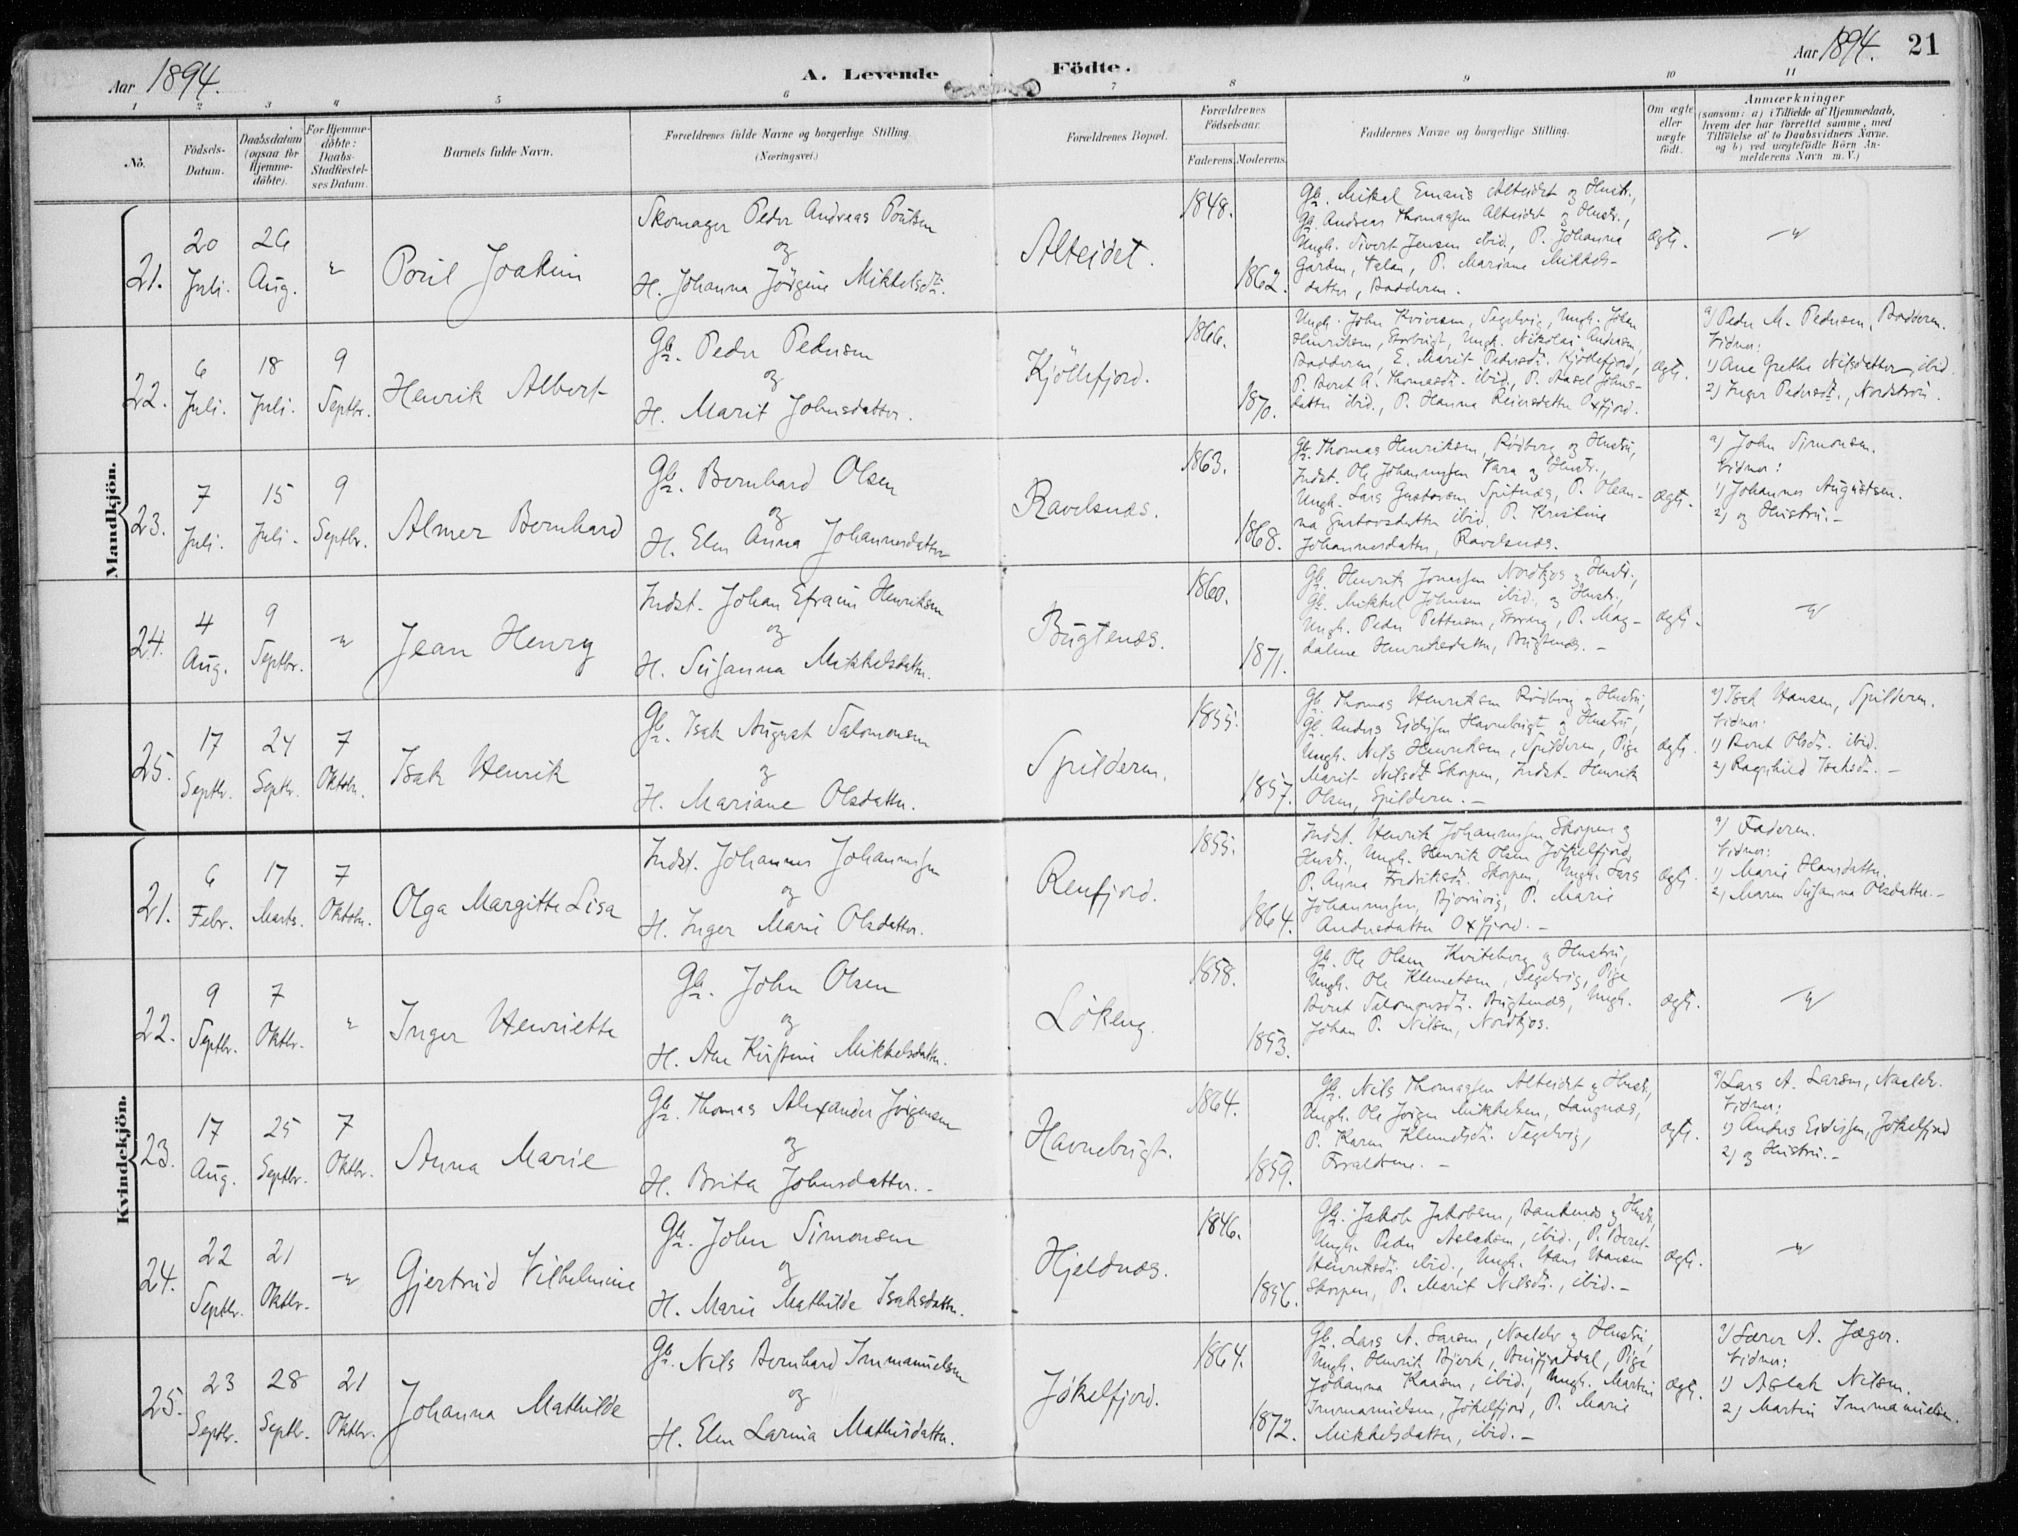 Aar 1894.
A. Levende Födte.
Aar 1894. 21
1 2 3 4 5 6 7 8 9 10 11
No.
Födsels-Datum.
Daabsdatum (ogsaa for Hjemme-döbte).
For Hjemme-döbte: Daabs-Stadfæstel-ses Datum.
Barnets fulde Navn.
Forældrenes fulde Navne og borgerlige Stilling.
(Næringsvei.)
Forældrenes Bopæl.
Forældrenes Födselsaar.
Faderens. Moderens.
Faddernes Navne og borgerlige Stilling.
Om ægte eller uægte födt.
Anmærkninger
(saasom: a) i Tilfælde af Hjemmedaab,
hvem der har forrettet samme, med
Tilföielse af to Daabsvidners Navne.
og b) ved uægtefödte Börn An-
melderens Navn m. V.)
Mandkjön.
21.
20 Juli.
26 Aug.
"
Poul Joakim
Skomager Peder Andreas Poulsen
og
H. Johanna Jörgine Mikkelsdtr.
Alteidet.
1848.
1862.
Gb. Mikal Emaus Alteidet og Hustr.,
Gb. Andreas Thomassen Alteidet og Hustr.,
Ungk. Sivert Jensen ibid., P. Johanna
Garden, Talan, P. Mariane Mikkels-
datter, Badderen.
ægte.
"
22.
6 Juli.
18 Juli.
9 Septbr.
Henrik Albert
Gb. Peder Pedersen
og
H. Marit Johnsdatter.
Kjöllefjord.
1866.
1870.
Ungk. John Kvivesen, Segelvig, Ungk. Johan
Henriksen, Storbugt, Ungk. Nikolai Andersen,
Badderen, E. Marit Pedersdtr. Kjöllefjord,
P. Beret A. Thomasdtr. ibid., P. Aasel Johns-
datter ibid., P. Hanna Reiersdatter Oxfjord.
ægte.
a) Peder M. Pedersen, Badderen.
Vidner:
1) Ane Grethe Nilsdatter, ibid.
2) Inger Pedersdtr., Nordström.
23.
7 Juli.
15 Juli.
9 Septbr.
Almer Bernhard
Gb. Bernhard Olsen
og
H. Elen Anna Johannesdatter
Ravelsnæs.
1863.
1868.
Gb. Thomas Henriksen, Rödberg og Hustru,
Indst. Ole Johannessen Vara og Hustr.,
Ungk. Lars Gustavsen Spitnæs, P. Olean-
na Gustavsdatter ibid. P. Kristine
Johannesdatter, Ravelsnæs.
ægte.
a) John Simonsen.
Vidner:
1) Johannes Augustsen.
2) og Hustru.
24.
4 Aug.
9 Septbr.
"
Jean Henry
Indst. Johan Efraim Henriksen
og
H. Susanna Mikkelsdatter.
Bugtenæs.
1860.
1871.
Gb. Henrik Jonassen Nordkjos og Hustr.,
Gb. Mikkel Johnsen ibid. og Hustr.,
Ungk. Peder Pettersen, Storvig, P. Mag-
dalene Henriksdatter, Bugtenæs.
ægte.
"
25.
17 Septbr.
24 Septbr.
7 Oktobr.
Isak Henrik
Gb. Isak August Salomonsen
og
H. Mariane Olsdatter.
Spilderen.
1855.
1857.
Gb. Thomas Henriksen Rödberg og Hustru,
Gb. Anders Eidissen Havnebugt og Hustru,
Ungk. Nils Henriksen, Spilderen, Pige
Marit Nilsdtr Skorpen, Indst. Henrik
Olsen, Spilderen.
ægte.
a) Isak Hansen, Spilderen.
Vidner:
1) Beret Olsdtr. ibid.
2) Ragnhild Isaksdtr.
Kvindekjön.
21.
6 Febr.
17 Marts.
7 Oktobr.
Olga Margitte Lisa
Indst. Johannes Johannessen
og
H. Inger Marie Olsdatter.
Renfjord.
1855.
1864.
Indst. Henrik Johannessen Skorpen og
Hustr., Ungk. Henrik Olsen Jökelfjord,
P. Anna Fredriksdtr. Skorpen, Ungk. Lars
Johannessen, Bjornvig, P. Marie
Andersdatter Oxfjord.
ægte.
a) Faderen.
Vidner:
1) Marie Hansdatter.
2) Maren Susanna Olsdatter.
22.
9 Septbr.
7 Oktbr.
"
Inger Henriette
Gb. John Olsen
og
H. Ane Kirstine Mikkelsdatter.
Lökeng.
1858.
1853.
Gb. Ole Olsen Kviteberg og Hustru,
Ungk. Ole Klemetsen, Segelvig, Pige
Beret Salomonsdtr. Bugtenæs, Ungk.
Johan P. Nilsen, Nordkjos.
ægte.
"
23.
17 Aug.
25 Septbr.
7 Oktbr.
Anna Marie
Gb. Thomas Alexander Jörgensen
og
H. Brita Johnsdatter.
Havnebugt.
1864.
1859.
Gb. Nils Thomassen Alteidet og Hustr.,
Ungk. Ole Jörgen Mikkelsen, Langnæs,
P. Karen Klemetsdtr. Segelvig,
Forældrene.
ægte.
a) Lars A. Larsen, Naelele.
Vidner:
1) Anders Eidissen, Jökelfjord
2) og Hustru.
24.
22 Septbr.
21 Oktbr.
"
Gjertrud Vilhelmine
Gb. John Simonsen
og
H. Marie Mathilde Isaksdatter.
Hjeldnæs.
1846.
1856.
Gb. Jakob Jakobsen, Bankenæs og Hustr.,
Ungk. Peder Aslaksen, ibid., P. Beret
Henriksdtr. ibid., Ungk. Hans Hansen
Skorpen, P. Marit Nilsdtr., ibid.
ægte.
"
25.
23 Septbr.
28 Septbr.
21 Oktbr.
Johanna Mathilde
Gb. Nils Bernhard Immanuelsen
og
H. Elen Larina Mathisdatter.
Jökelfjord.
1864.
1872.
Gb. Lars A. Larsen, og Hustru,
Ungk. Henrik Björk, Burfjorddal, Pige
Johanna Kaasen, ibid., Ungk. Martin
Immanuelsen, Jökelfjord, P. Marie
Mikkelsdatter, ibid.
ægte.
a) Lærer A. Jæger.
Vidner:
1) Aslak Nilsen.
2) Martin Immanuelsen.